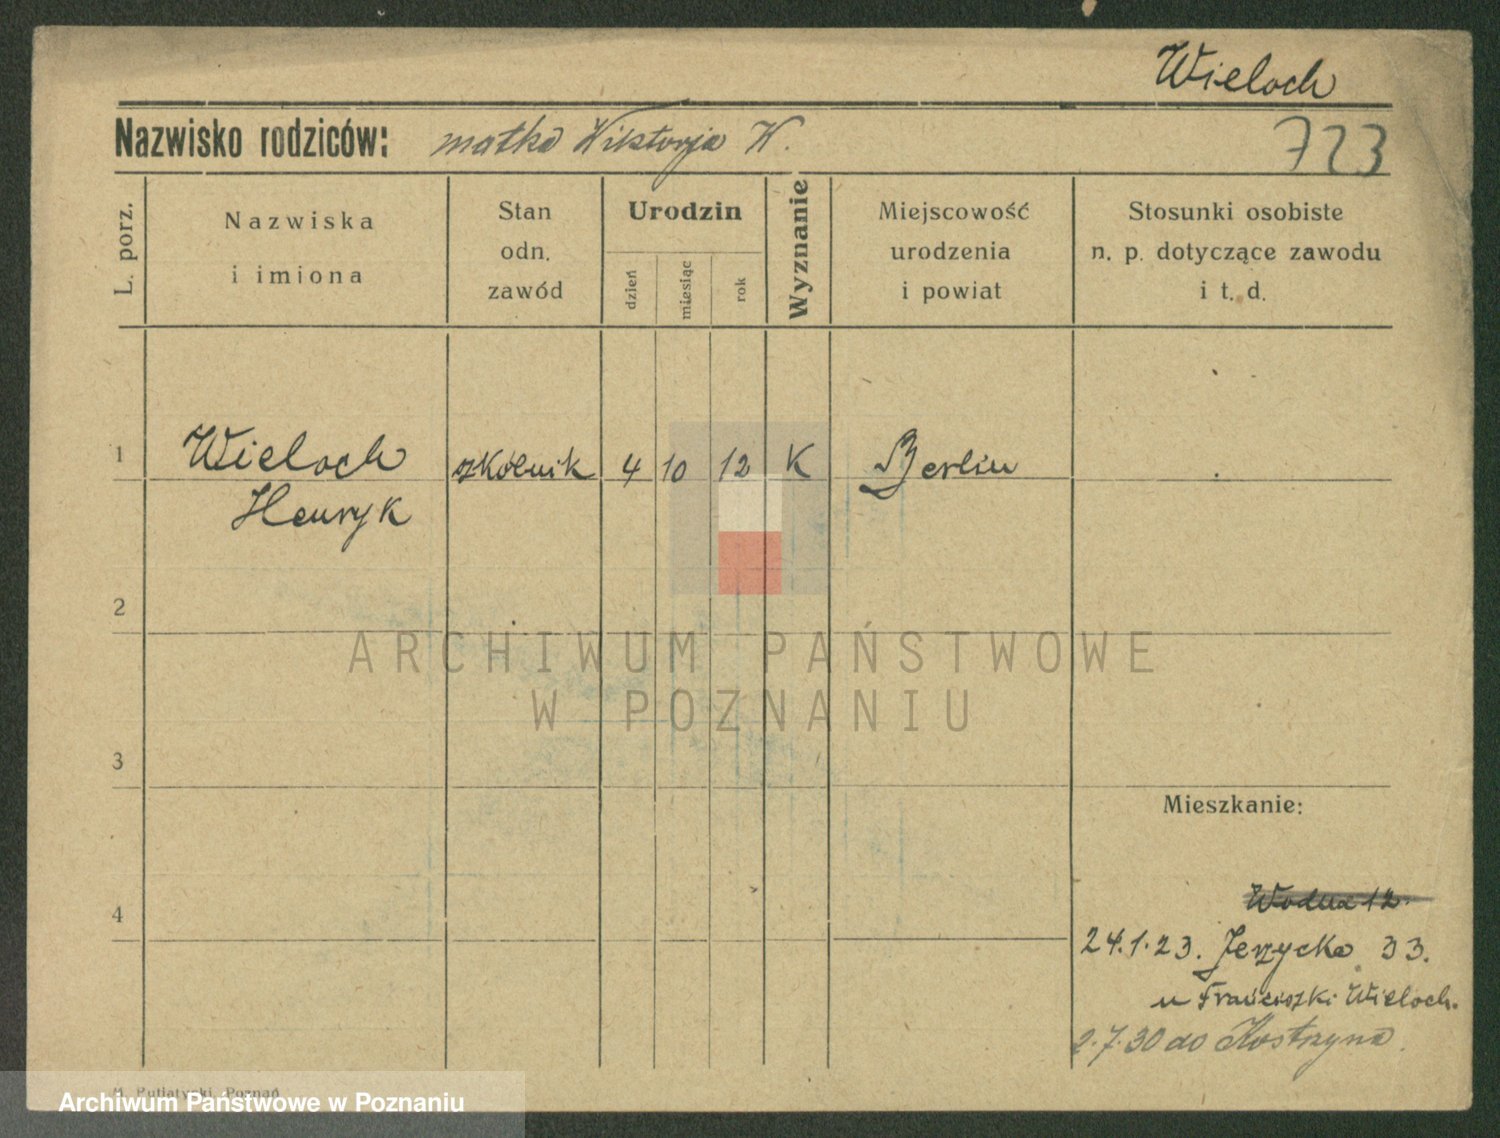 Wieloch
Nazwisko rodziców: matka Wiktorja W.
723
L. porz.
Nazwiska
i imiona
Stan
odn.
zawód
Urodzin
dzień
miesiąc
rok
Wyznanie
Miejscowość
urodzenia
i powiat
Stosunki osobiste
n. p. dotyczące zawodu
i t. d.
1 Wieloch szkólnik 4 10 12 K Berlin
Henryk
2
ARCHIWUM PAŃSTWOWE
W POZNANIU
3
Mieszkanie:
4
Wodna 12.
24.1.23. Jeżycka 33.
u Franciszki Wieloch.
2.7.30 do Kostrzyna.
Poznań
Archiwum Państwowe w Poznaniu